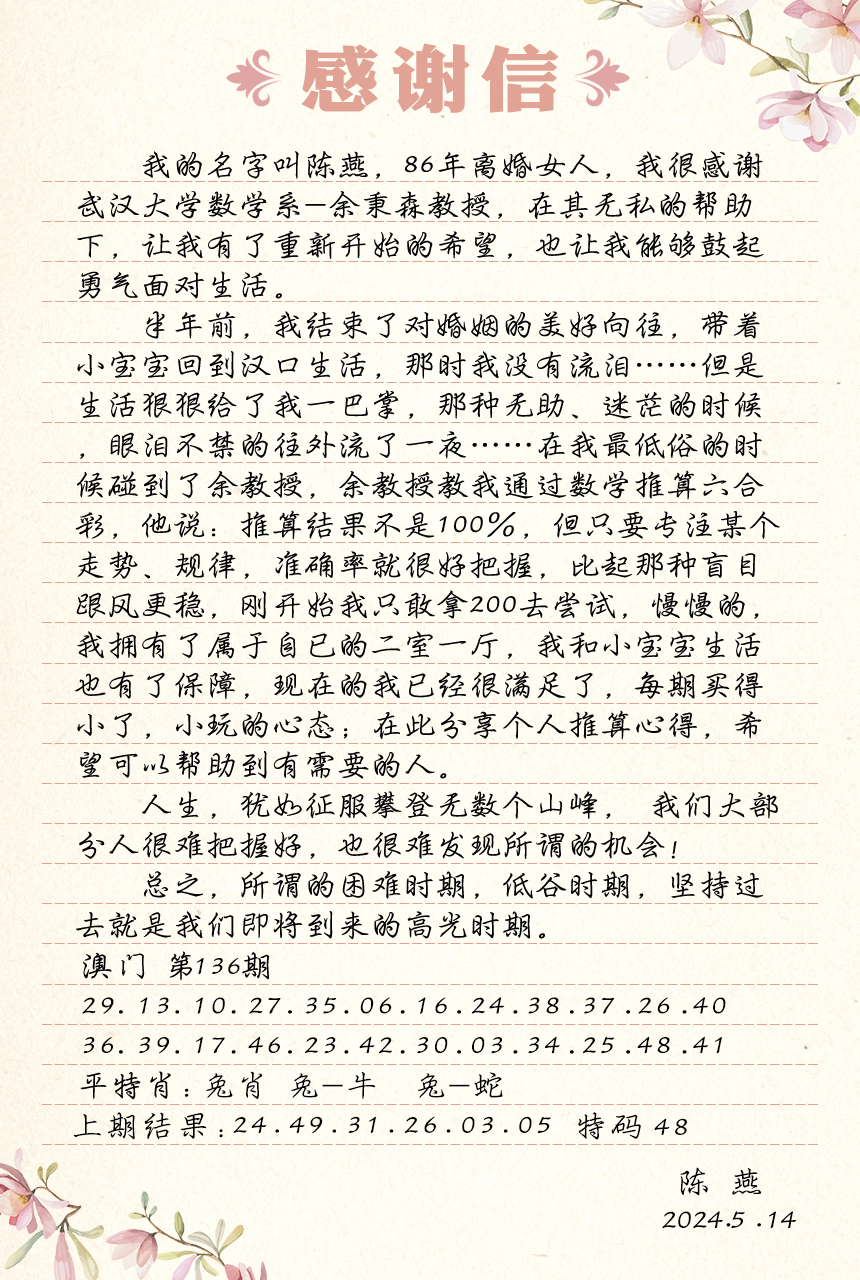 感谢信
我的名字叫陈燕，86年离婚女人，我很感谢
武汉大学数学系—余秉森教授，在其无私的帮助
下，让我有了重新开始的希望，也让我能够鼓起
勇气面对生活。
半年前，我结束了对婚姻的美好向往，带着
小宝宝回到汉口生活，那时我没有流泪……但是
生活狠狠给了我一巴掌，那种无助、迷茫的时候
，眼泪不禁的往外流了一夜……在我最低俗的时
候碰到了余教授，余教授教我通过数学推算六合
彩，他说：推算结果不是100%，但只要专注某个
走势、规律，准确率就很好把握，比起那种盲目
跟风更稳，刚开始我只敢拿200去尝试，慢慢的，
我拥有了属于自已的二室一厅，我和小宝宝生活
也有了保障，现在的我已经很满足了，每期买得
小了，小玩的心态；在此分享个人推算心得，希
望可以帮助到有需要的人。
人生，犹如征服攀登无数个山峰， 我们大部
分人很难把握好，也很难发现所谓的机会！
总之，所谓的困难时期，低谷时期，坚持过
去就是我们即将到来的高光时期。
澳门 第136期
29.13.10.27.35.06.16.24.38.37.26.40
36.39.17.46.23.42.30.03.34.25.48.41
平特肖：兔肖 兔—牛 兔—蛇
上期结果：24.49.31.26.03.05 特码 48
陈 燕
2024.5 .14